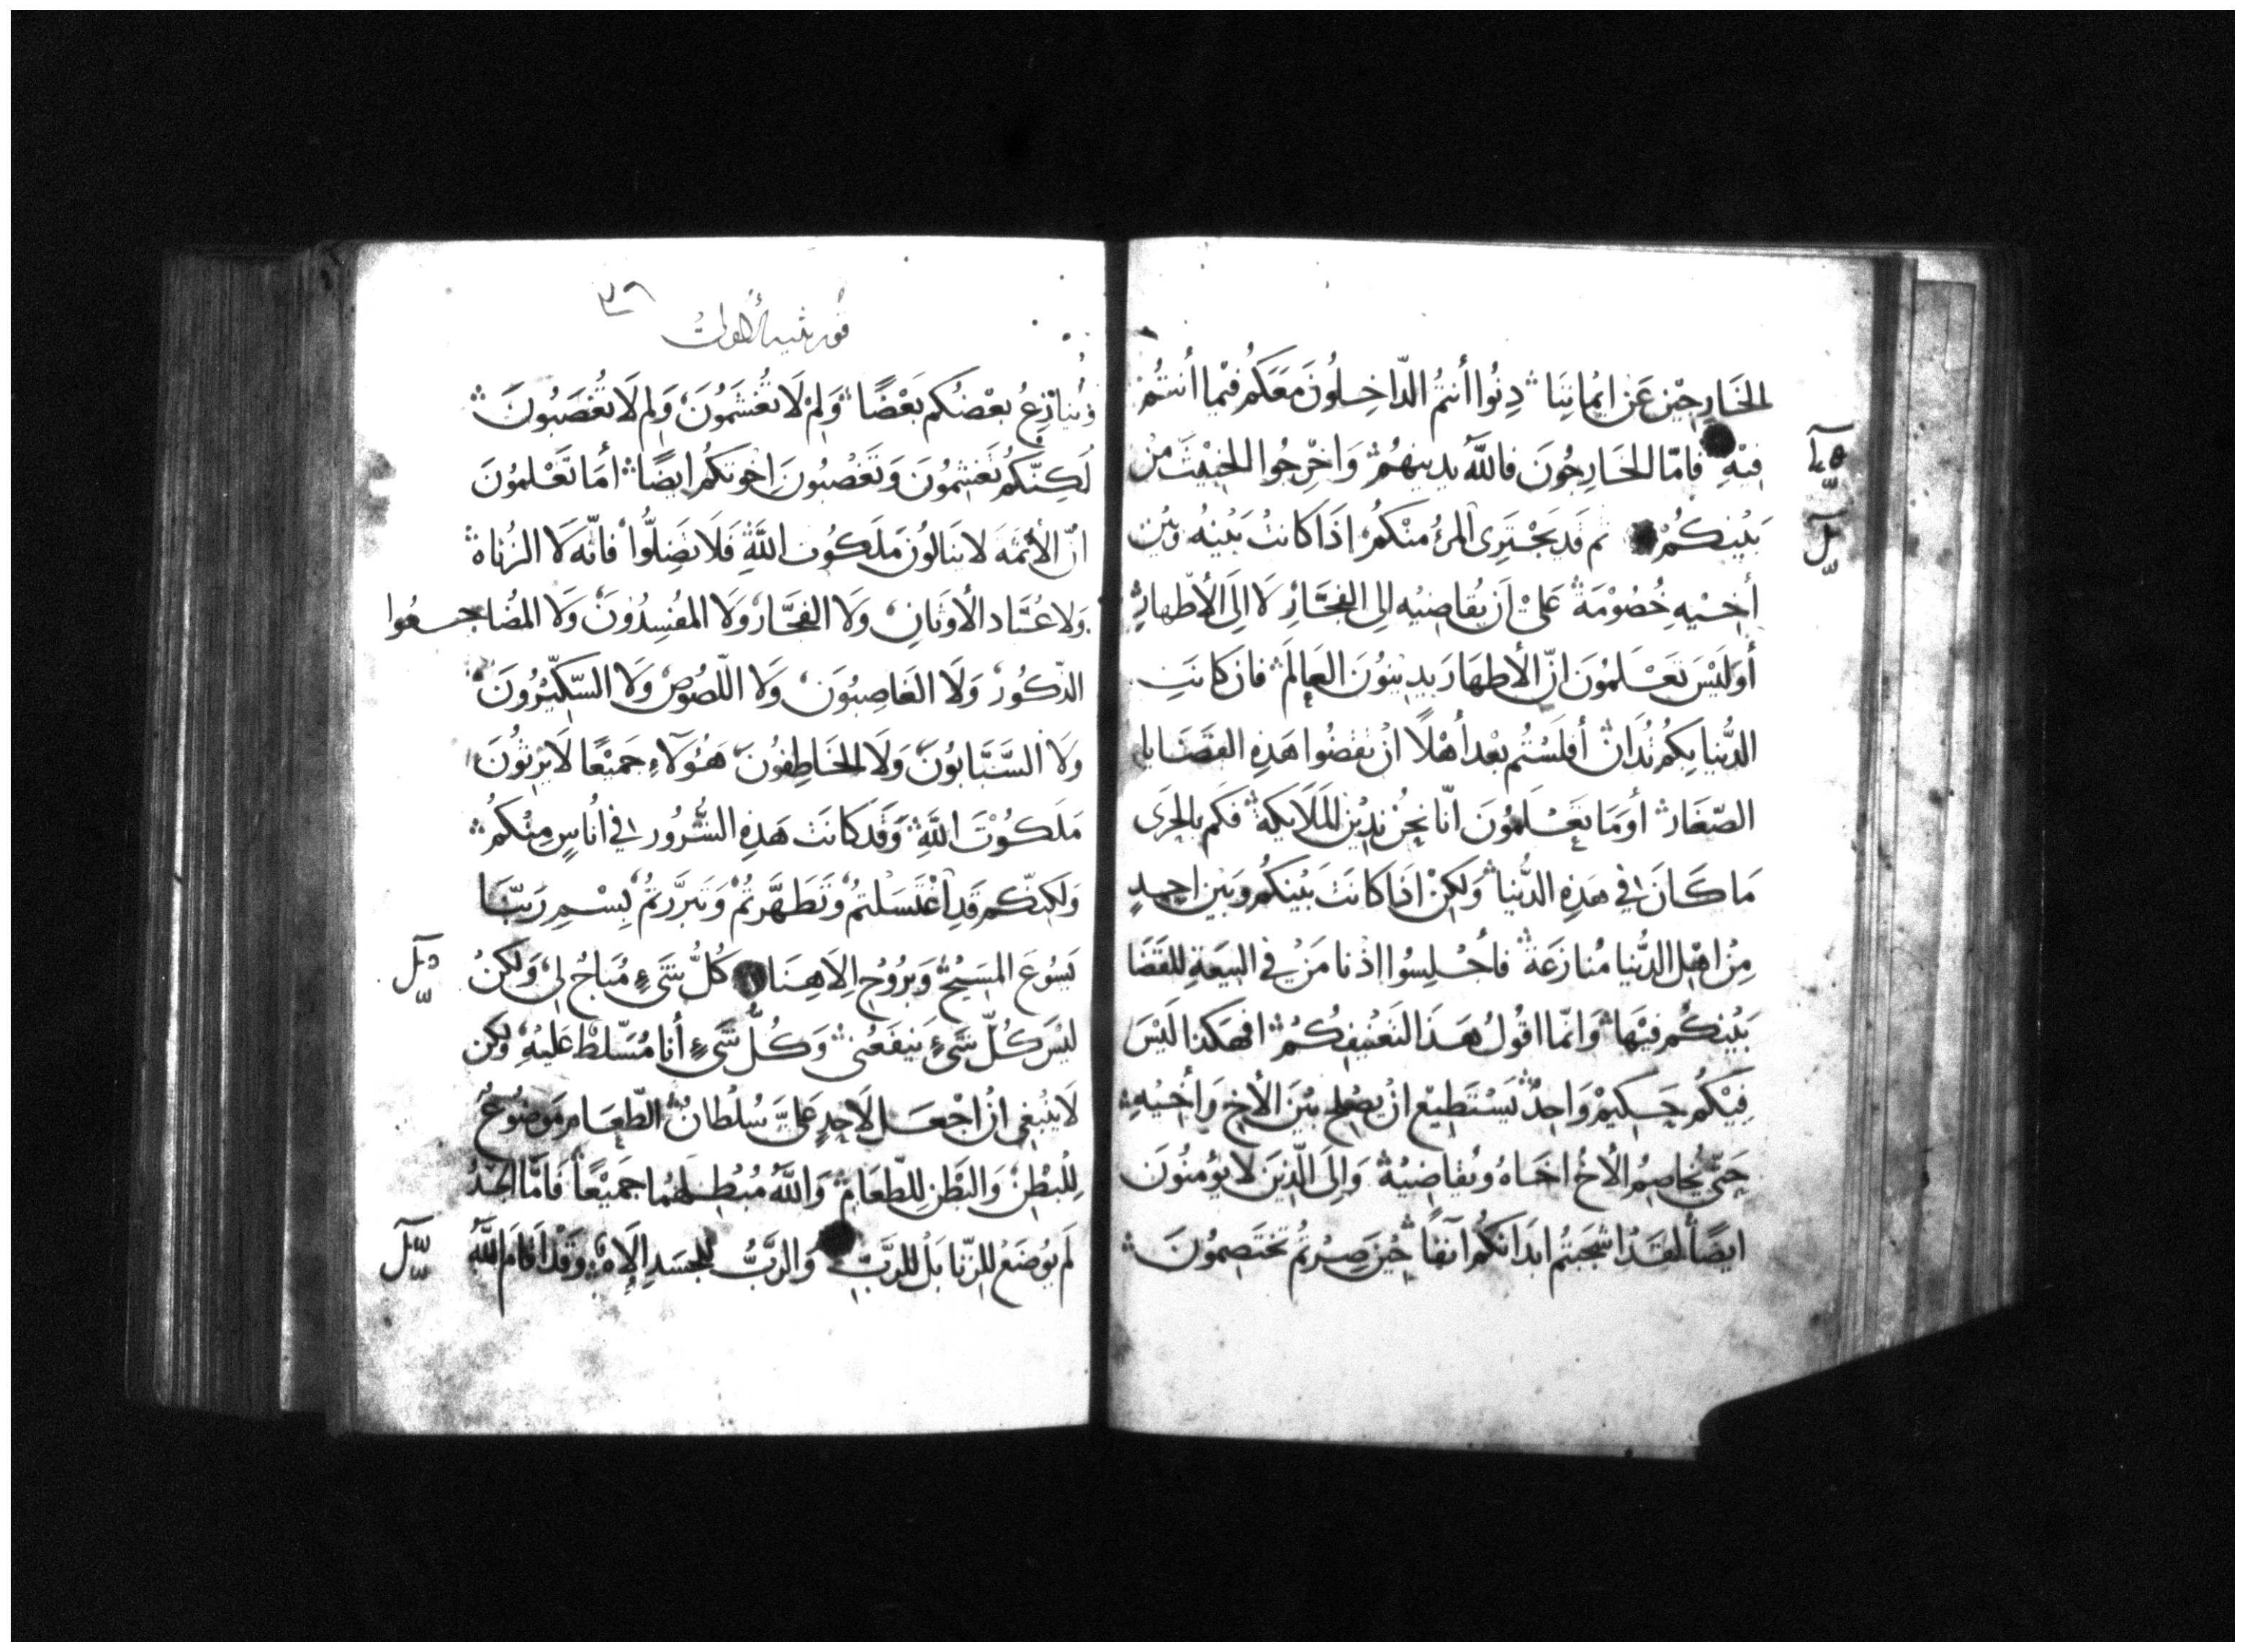 الخَارِجِيْن عَنْ ايمانِنَا دِنُوا أنتمُ الدّاخِلُونَ مَعَكم فيْما أنتمْ
فِيْهِ فامّا الخَارِجُونَ فاللَّهُ يدينهُمْ وَاخْرِجُوا الخبيْثَ مِنْ
بَيْنِكُمْ ثم قَد يَجْتَرِى المرءُ منْكمُ اذَا كانتْ بَيْنِه وَبَيْن
أخيْهِ خُصُوْمَةٌ عَلىْ اَن يُقاضِيه الى الفجَّارِ لَا الَى الأطهارِ
أوَلَيْسَ تَعْلَمُونَ انّ الأطهارَ يدِينوُنَ العَالمَ فان كانَتِ
الدُّنيا بِكمُ تُدَانْ أفلَسْتُم بعْد أهْلاً انْ تقضُوا هَذِهِ القضَايا
الصّغَار أومَا تعْلمُونَ انّا نحنُ ندِيْن الملَايكةَ فكَم بالحَرَى
مَا كانَ في هذِهِ الدُّنيا وَلكِنْ اذا كانَتْ بَيْنكمُ وَبَيْن احِدٍ
مِنْ اهْل الدُّنيا مُنازعَةٌ فأجْلِسُوا اذْنا مَنْ في البيْعَةِ للقَضَا
بَيْنكُم فيْها وَانّما اقولُ هَذَا لتعْنيفِكُمْ افهكذا لَيْسَ
فِيْكُم حَكيمْ وَاحِدٌ يَسْتَطِيْع انْ يصْلح بيْنَ الأخِ وَأخيْهِ
حَتّى يُخاصِمُ الأخُ اخَاهُ وَيُقاضِيهْ وَالِى الّذِينَ لَا يؤمنُونَ
ايضًا لقَدْ اشجَبتُم ابدَانكُم آنفًا حِيْن صِرْتُم تختَصِمُونَ
قورنثيه الأولى
٣٩
وَيُنازِعُ بعْضُكم بَعْضًا وَلِمْ لَا تُغْشَمُونَ وَلِم لَا تُغْصَبُونَ
لَكِنّكُم تَغشِمُونَ وَتَغْصُبُونَ اخْوتكُم ايضًا أمَا تَعْلمُونَ
انّ الأثمَةَ لا ينالونَ مَلَكُوت اللَّهِ فَلَا تَضِلُّوا فانّه لَا الزُّناةْ
وَلا عُبَّاد الأوثانِ وَلَا الفجَّارْ وَلَا المفسِدُونَ وَلَا المُضاجعُوا
الذّكُورْ وَلَا الغَاصِبُونَ وَلَا اللّصُوصْ وَلَا السّكِّيرُونَ
وَلَا السَّبَّابُونَ وَلَا الخَاطِفُونَ هَؤلَاءِ جَميْعًا لَا يَرِثُونَ
مَلَكُوْتَ اللَّهِ وَقَد كانَتْ هَذِهِ الشُّرُور في أُناسٍ مِنْكمُ
وَلَكِنّكم قَد اغتَسَلتمُ وَتَطَهَّرتمْ وَتَبرَّرتمُ بِسْمِ رَبّنَا
يَسُوعَ المَسِيْحْ وَبرُوْح الَاهِنَا كُلُّ شَىْءٍ مُبَاحُ لِى وَلَكِنْ
ليْسَ كلّ شَىْءٍ يَنفَعُنى وَكُلّ شَىْءٍ أنا مُسّلطْ عَليْهِ وَلكن
لَا ينْبَغِى انْ اجْعَل لأحِدٍ عَلىَّ سُلْطانْ الطّعَام مَوضُوعُ
لِلْبَطْنْ وَالبَطْن لِلطّعَامْ وَاللَّهُ مُبْطِلهُما جَمِيْعًا فَامَّا الجسَدُ
لَم يُوضَعْ للزّنا بَلْ للرَّبِّ وَالرَّبُّ للجَسَدِ الإلاهْ وَقَدْ اَقامَ اللَّهُ